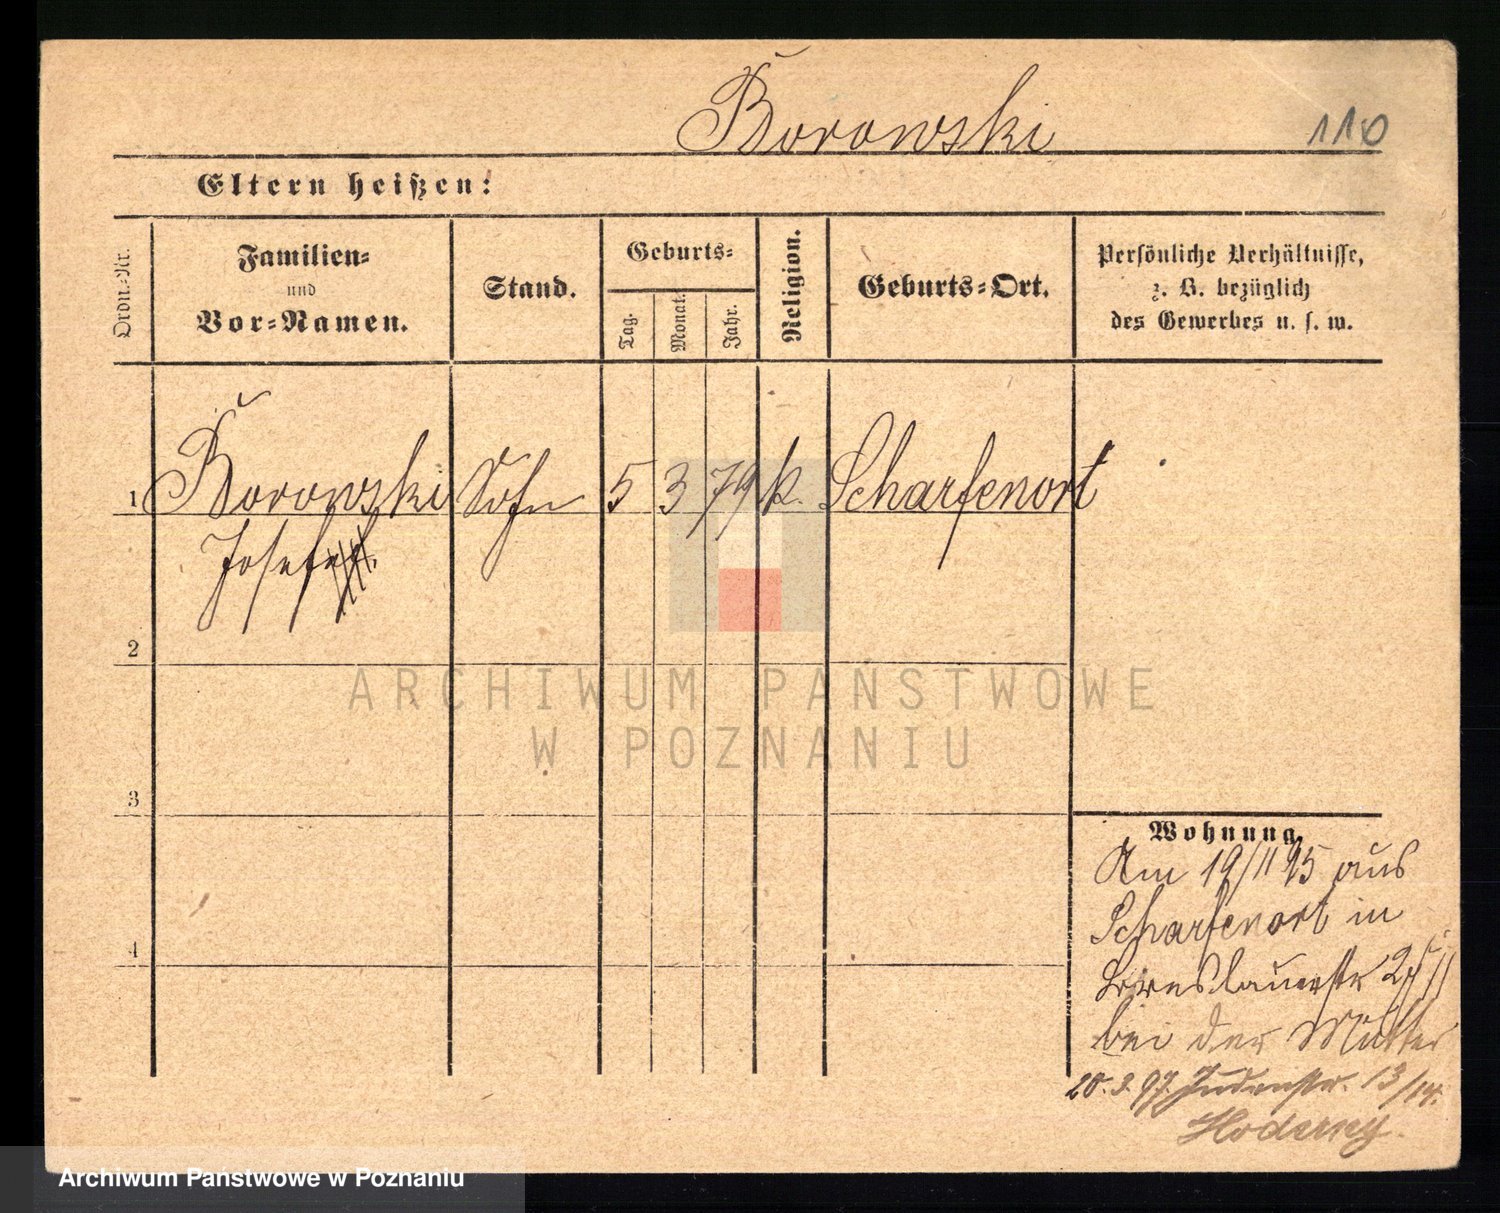 Borowski
110
Eltern heißen:
Ordn.-Nr.
Familien-
und
Vor-Namen.
Stand.
Geburts-
Tag.
Monat.
Jahr.
Religion.
Geburts-Ort.
Persönliche Verhältnisse,
z. B. bezüglich
des Gewerbes u. s. w.
1 Borowski Sohn 5 3 79 k. Scharfenort
Josef
2
3
4
Wohnung
Am 19/11 95 aus
Scharfenort in
Breslauerstr
bei der Mutter
20.3.97. Judenstr. 13/14.
ARCHIWUM PAŃSTWOWE
W POZNANIU
Archiwum Państwowe w Poznaniu